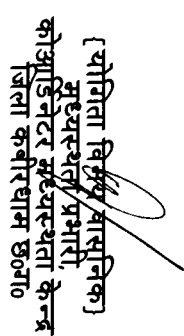 {योगिता विनय वासनिक}
मध्यस्थता प्रभारी,
कोआर्डिनेटर मध्यस्थता केन्द्र
जिला कबीरधाम छ0ग0